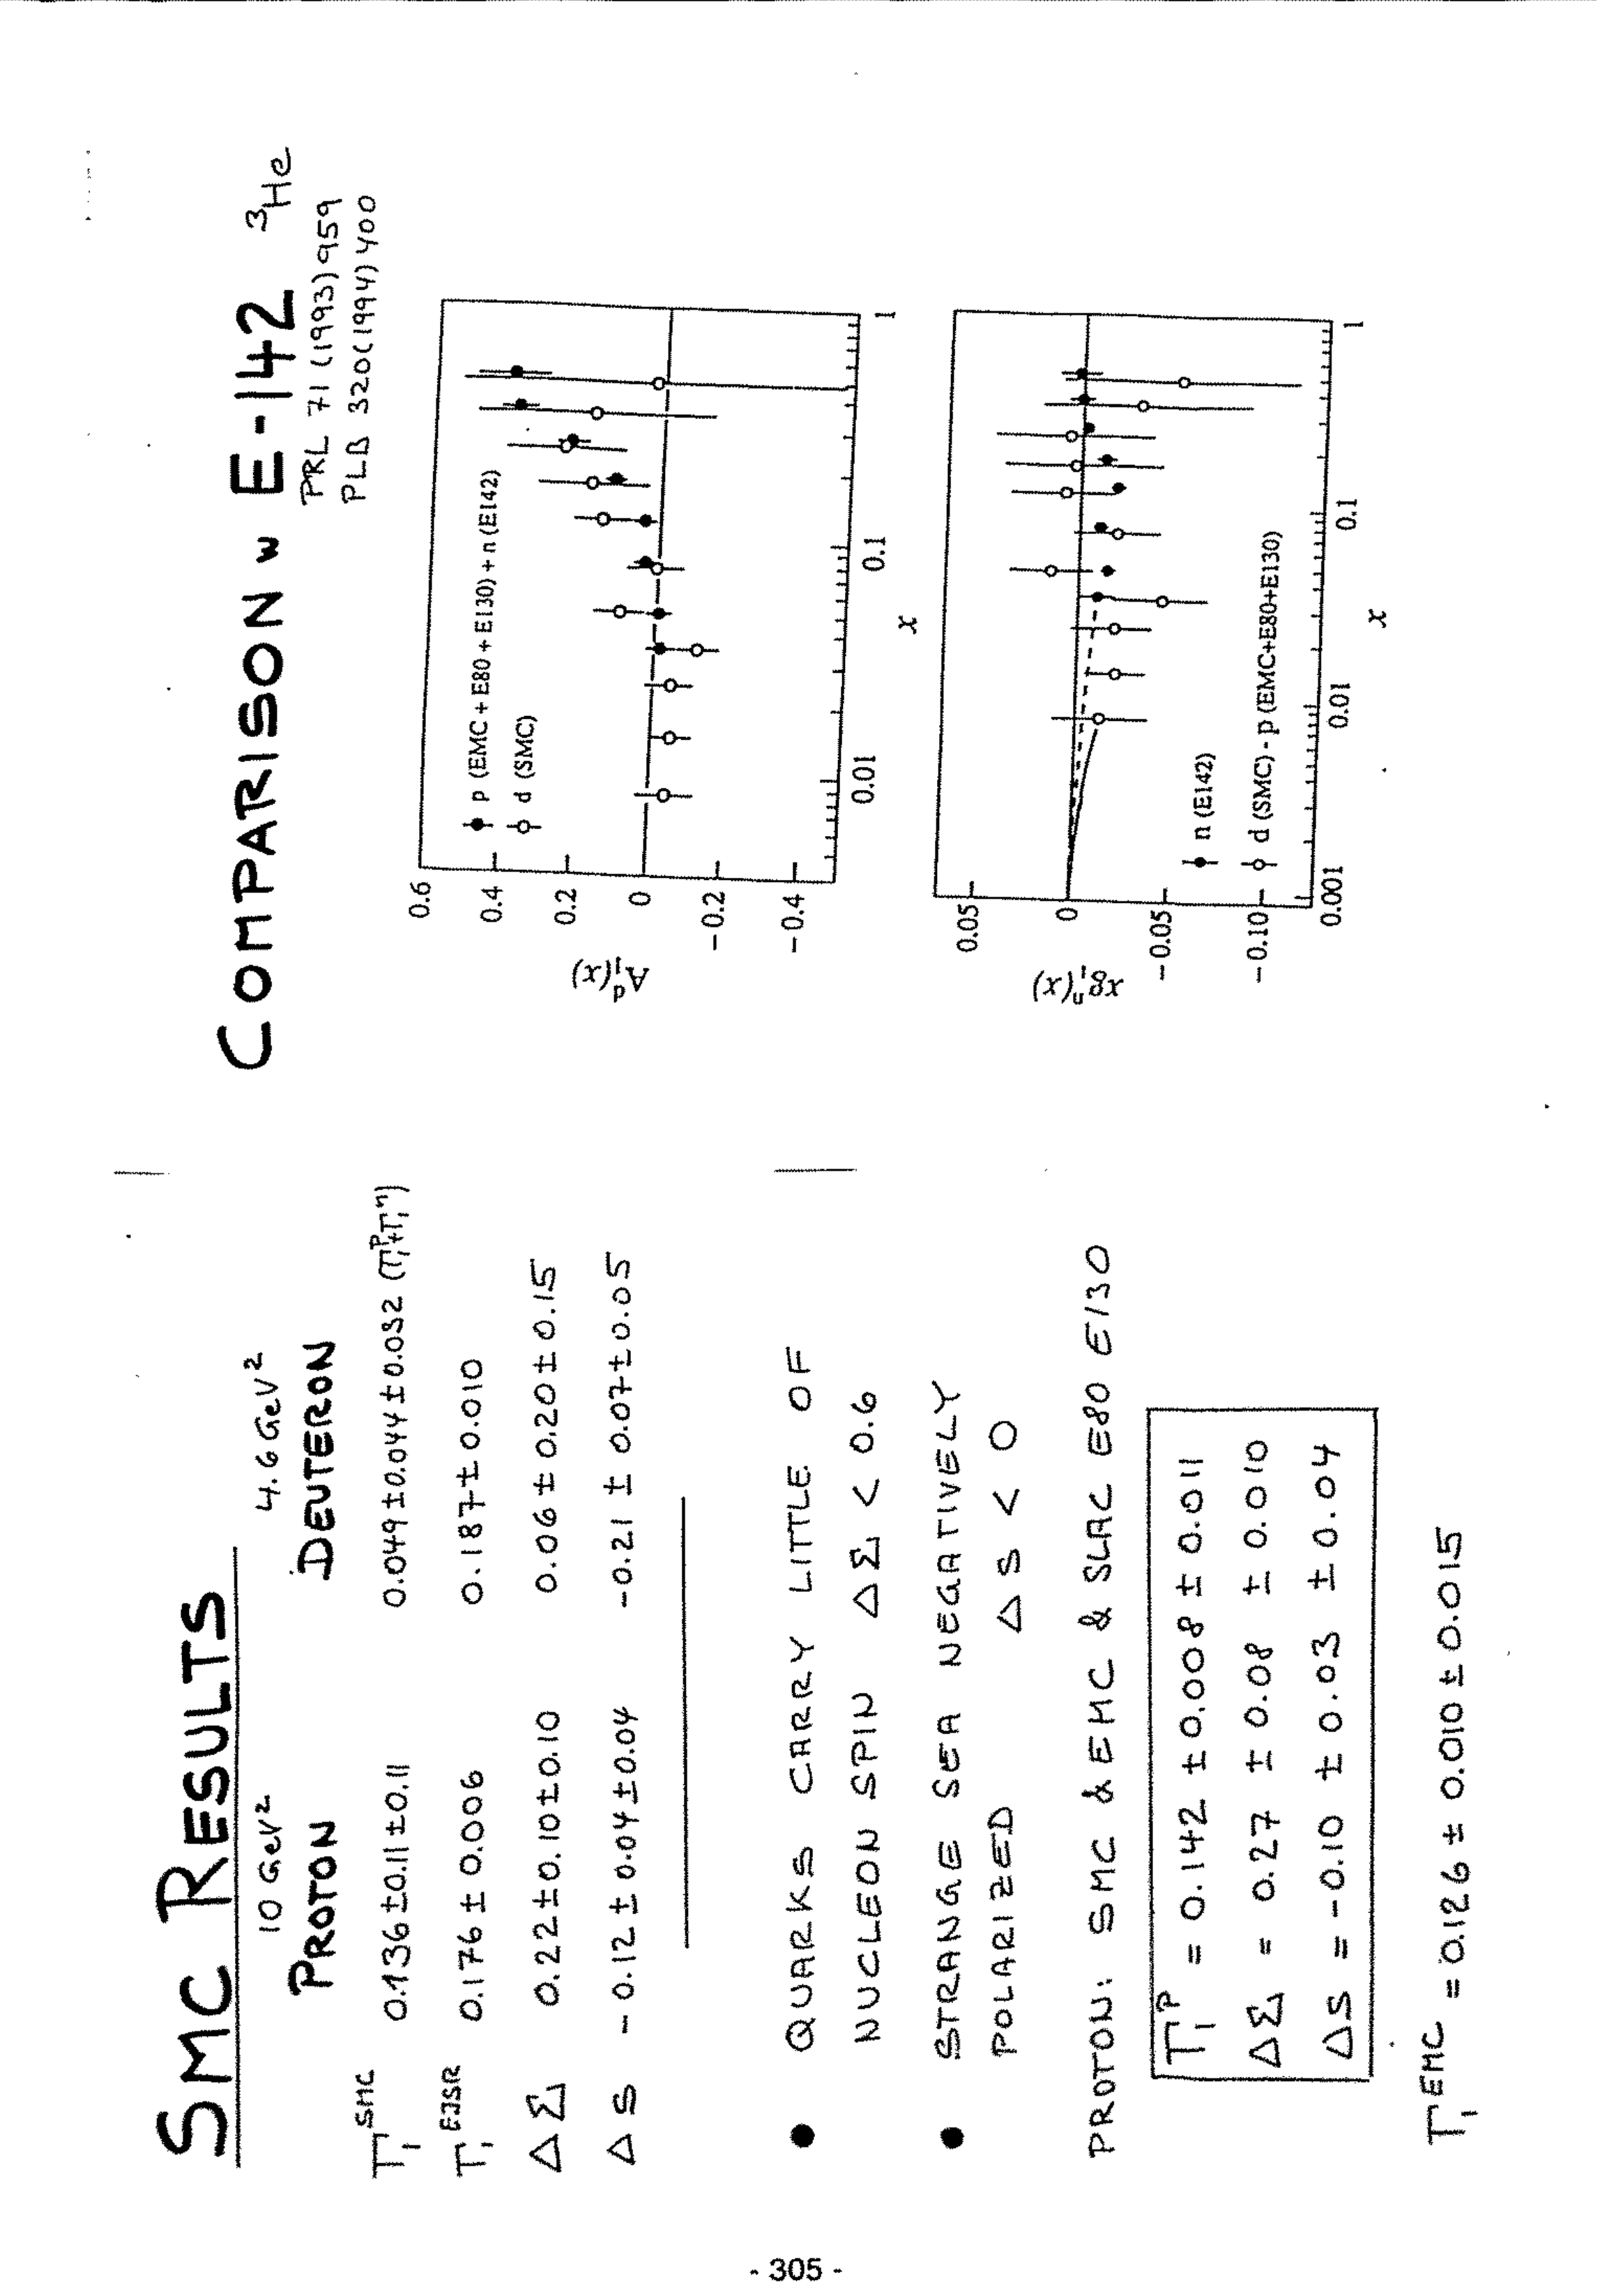 SMC RESULTS
10 GeV² 4.6 GeV²
PROTON DEUTERON
Γ₁^SMC 0.136 ±0.11 ±0.11 0.049 ±0.044 ±0.032 (Γ₁^p+Γ₁^n)
Γ₁^EJSR 0.176 ± 0.006 0.187 ± 0.010
ΔΣ 0.22 ± 0.10 ± 0.10 0.06 ± 0.20 ± 0.15
ΔS -0.12 ± 0.04 ± 0.04 -0.21 ± 0.07 ± 0.05
● QUARKS CARRY LITTLE OF
NUCLEON SPIN ΔΣ < 0.6
● STRANGE SEA NEGATIVELY
POLARIZED ΔS < 0
PROTON: SMC & EMC & SLAC E80 E130
Γ₁^P = 0.142 ± 0.008 ± 0.011
ΔΣ = 0.27 ± 0.08 ± 0.010
ΔS = -0.10 ± 0.03 ± 0.04
Γ₁^EMC = 0.126 ± 0.010 ± 0.015
COMPARISON w E-142 ³He
PRL 71 (1993) 959
PLB 320 (1994) 400
p (EMC + E80 + E130) + n (E142)
d (SMC)
0.6
0.4
0.2
0
-0.2
-0.4
A₁^d(x)
0.01 0.1 1
x
0.05
0
-0.05
-0.10
xg₁^n(x)
n (E142)
d (SMC) - p (EMC+E80+E130)
0.001 0.01 0.1 1
x
- 305 -